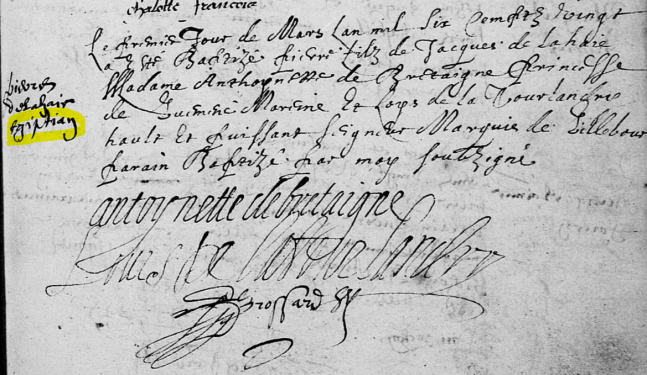 charlotte francoise
Le premier Jour de Mars Lan mil Six Cens vingt
a esté Baptizé pierre filz de Jacques de la haie
Madame Anthoynette de Bretaigne Princesse
de Guemené Marine Et Loys de la Tourlandry
hault Et puissant Seigneur Marquis de
parain Baptizé par moy soubzigné
pierre
delahaie
Egiptian
antoynette de bretaigne
Louis de
Brossard